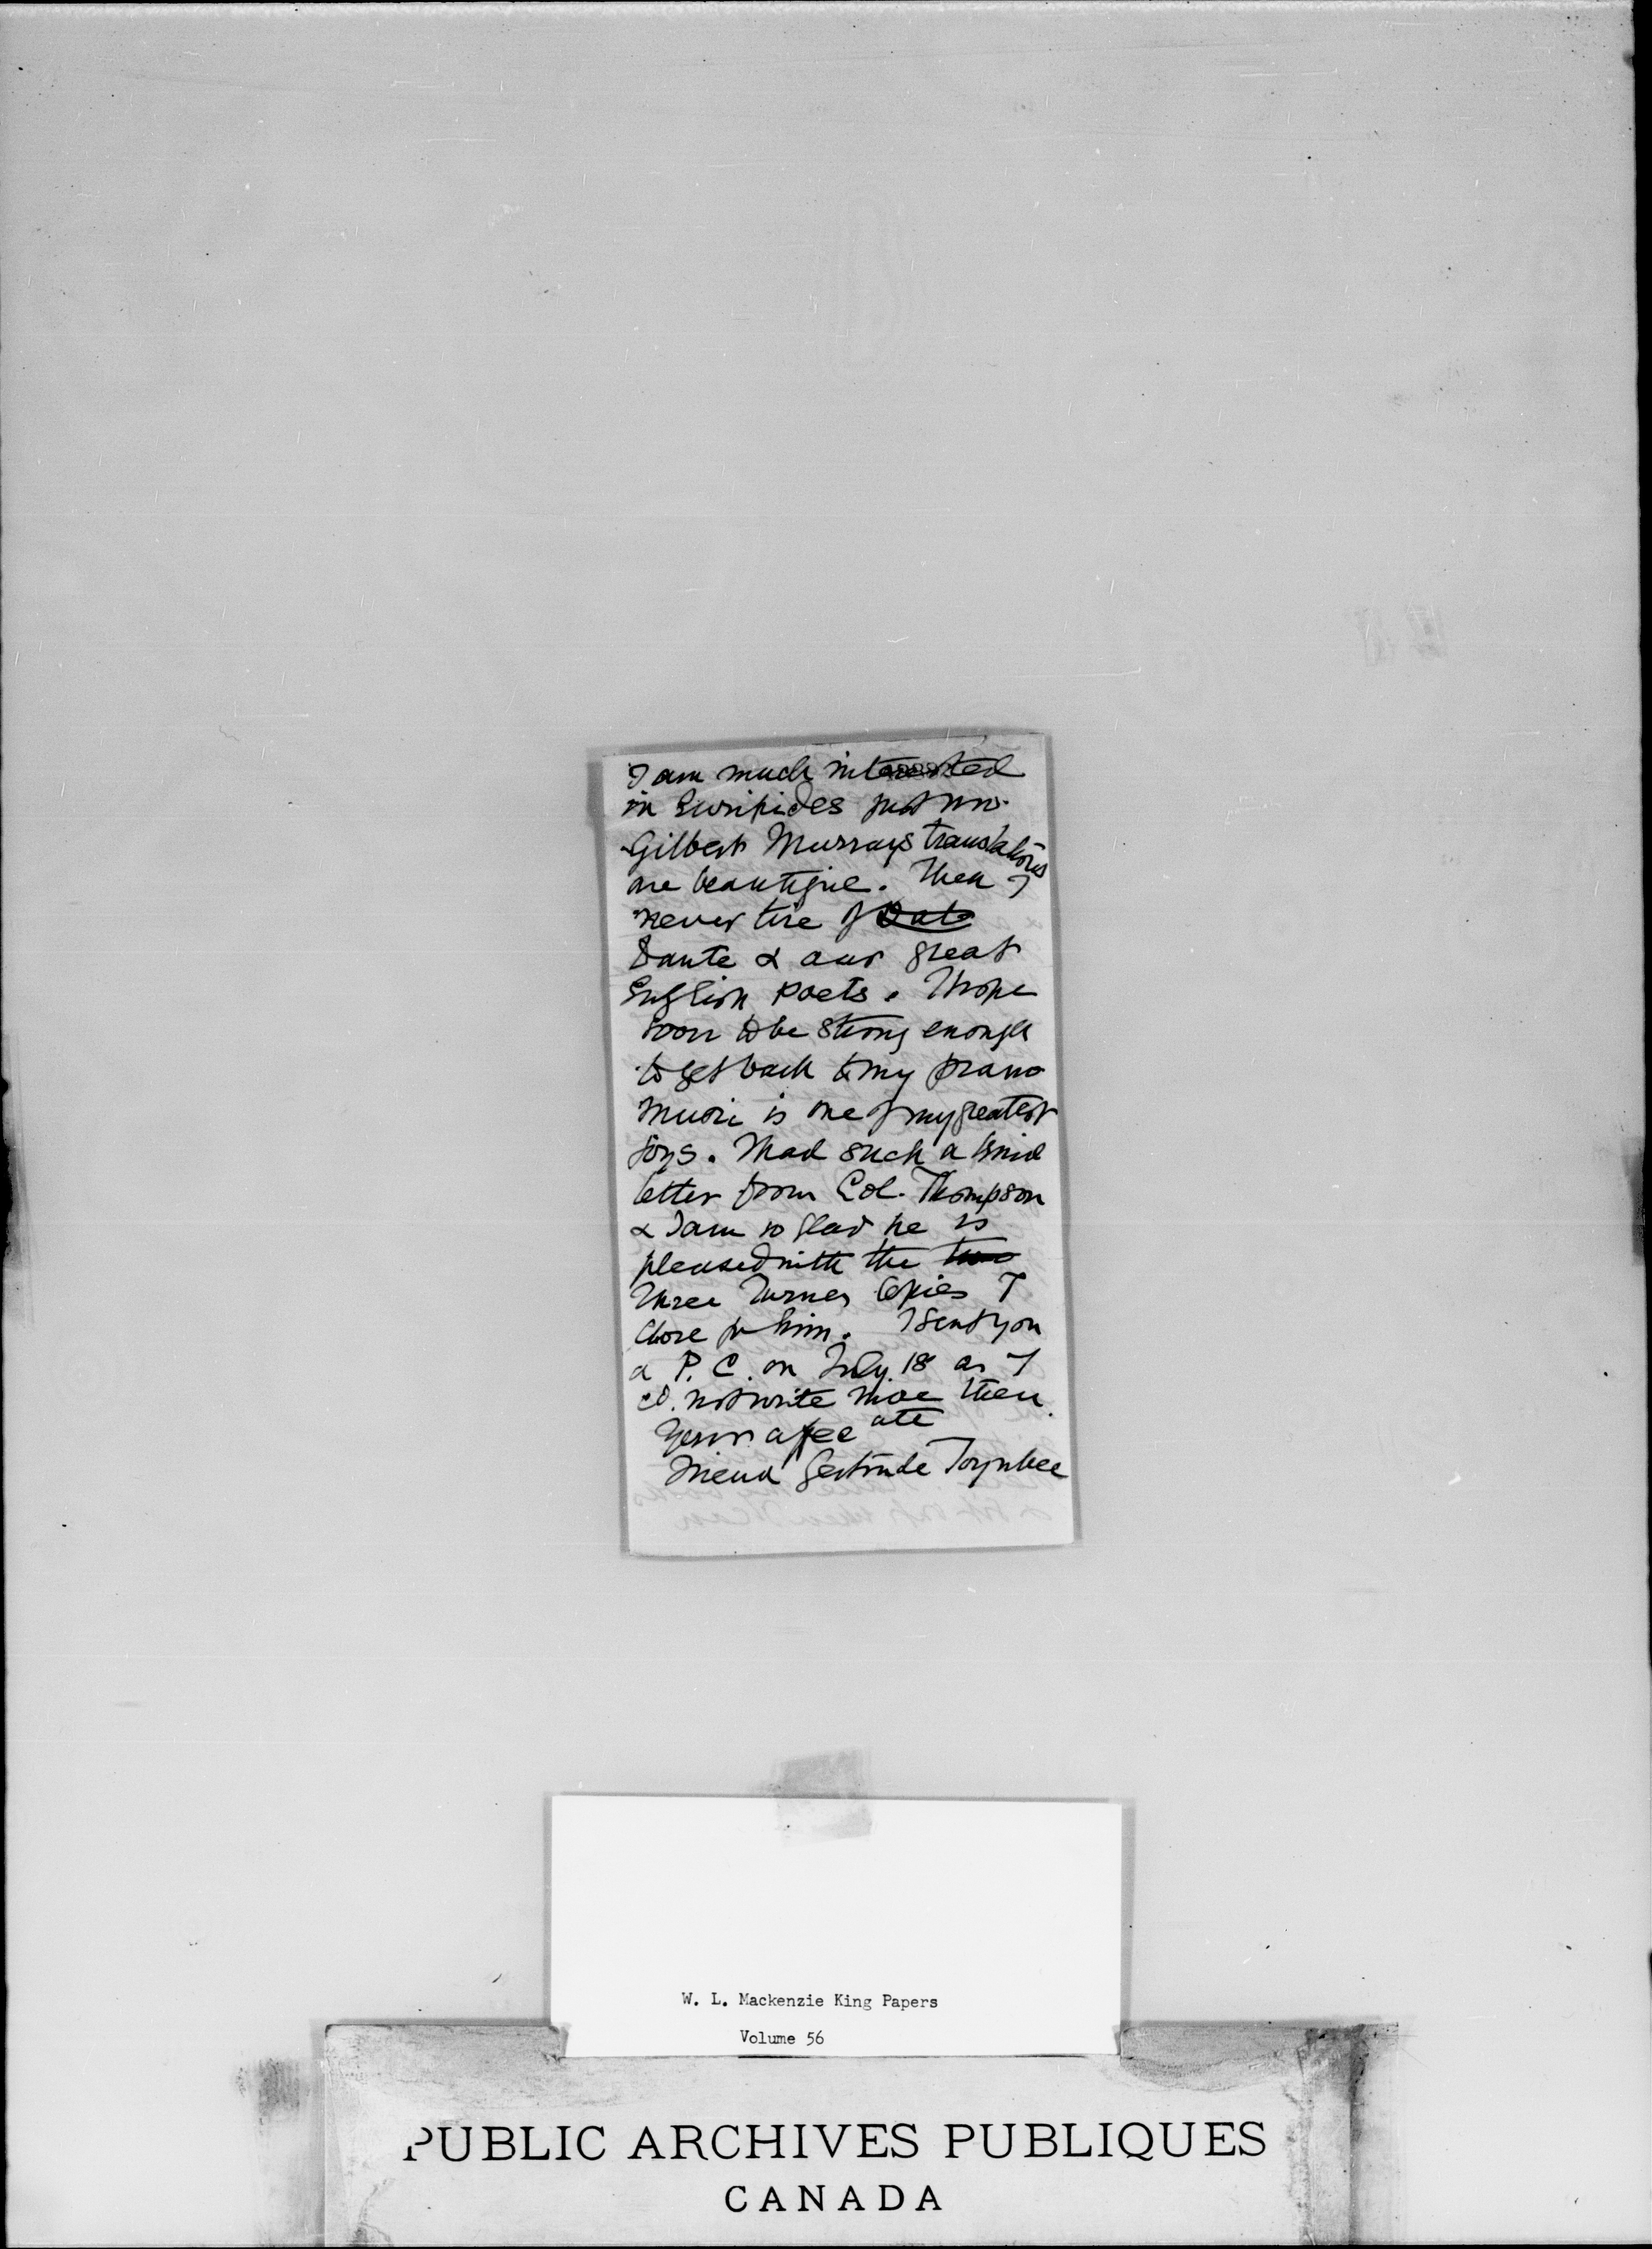 I am much interested
in Euripides just now.
Gilbert Murrays translations
are beautiful. Then I
never tire of Date
Dante & our great
English Poets. I hope
soon to be strong enough
to get back to my piano
Music is one of my greatest
joys. I had such a kind
letter from Col. Thompson
& I am so glad he is
pleased with the two
three Turner Copies I
chose for him. I sent you
a P.C. on July 18 as I
cd. not write more then.
Your affecate
friend Gertrude Toynbee
W. L. Mackenzie King Papers
Volume 56
PUBLIC ARCHIVES PUBLIQUES
CANADA